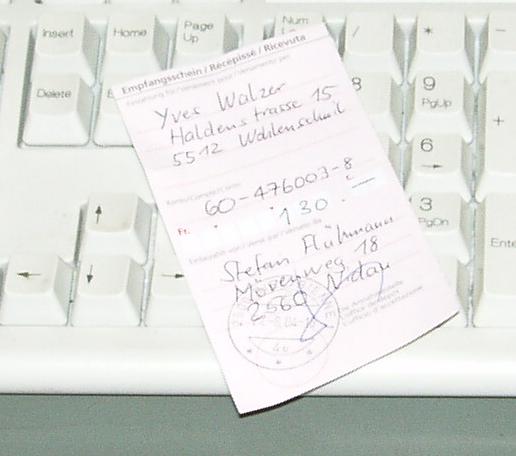 Insert
Home
Page Up
Num
/
*
-
Delete
8
9
PgUp
+
6
3
PgDn
Ente
Empfangsschein / Récépissé / Ricevuta
Einzahlung für / Versement pour / Versamento per
Yves Walzer
Haldenstrasse 15
5512 Wohlenschwil
Konto / Compte / Conto
60-476003-8
Fr.
130.—
Einbezahlt von / Versé par / Versato da
Stefan Flühmann
Mövenweg 18
2560 Nidau
Die Annahmestelle
L'office de dépôt
L'ufficio d'accettazione